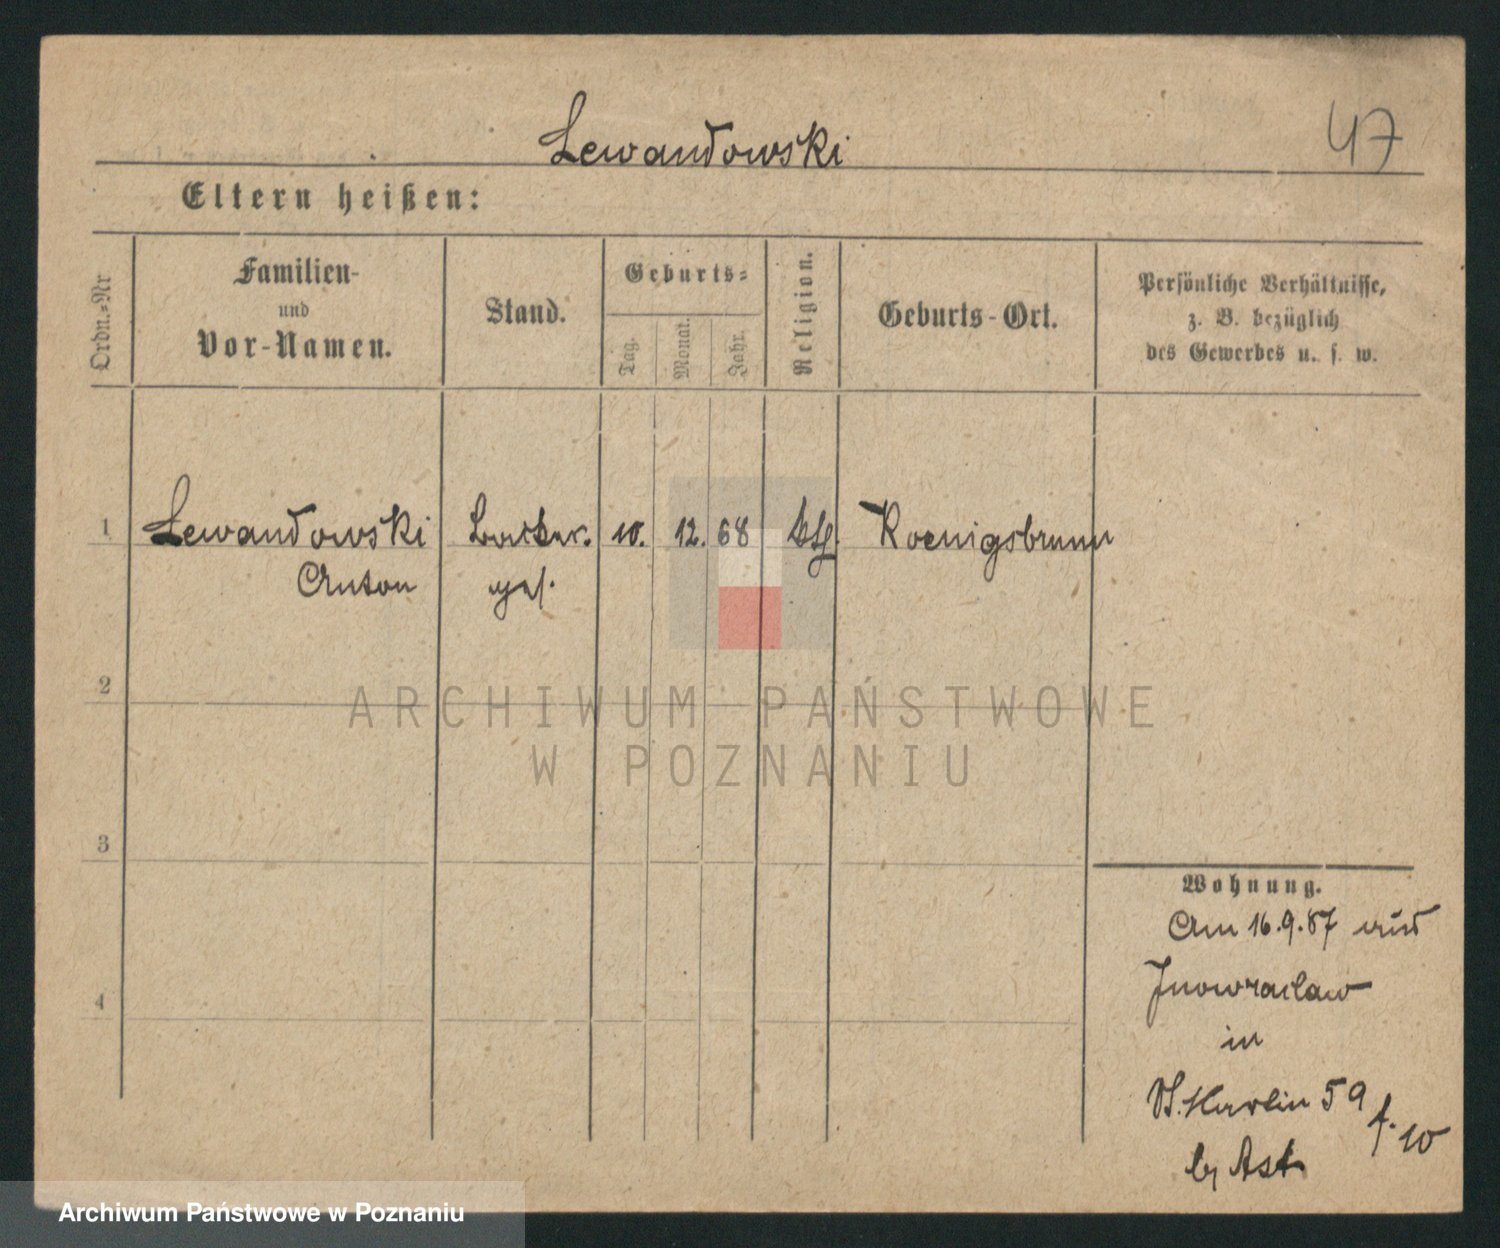 Lewandowski
47
Eltern heißen:
Ordn.-Nr
Familien-
und
Vor-Namen.
Stand.
Geburts-
Tag.
Monat.
Jahr.
Religion.
Geburts-Ort.
Persönliche Verhältnisse,
z. B. bezüglich
des Gewerbes u. s. w.
1
Lewandowski
Anton
ges.
10.
12.
68
kth.
Koenigsbrunn
2
ARCHIWUM PAŃSTWOWE
W POZNANIU
3
Wohnung.
Am 16.9.87 aus
Inowraclaw
in
St. Martin 59
10
b. Ast
4
Archiwum Państwowe w Poznaniu